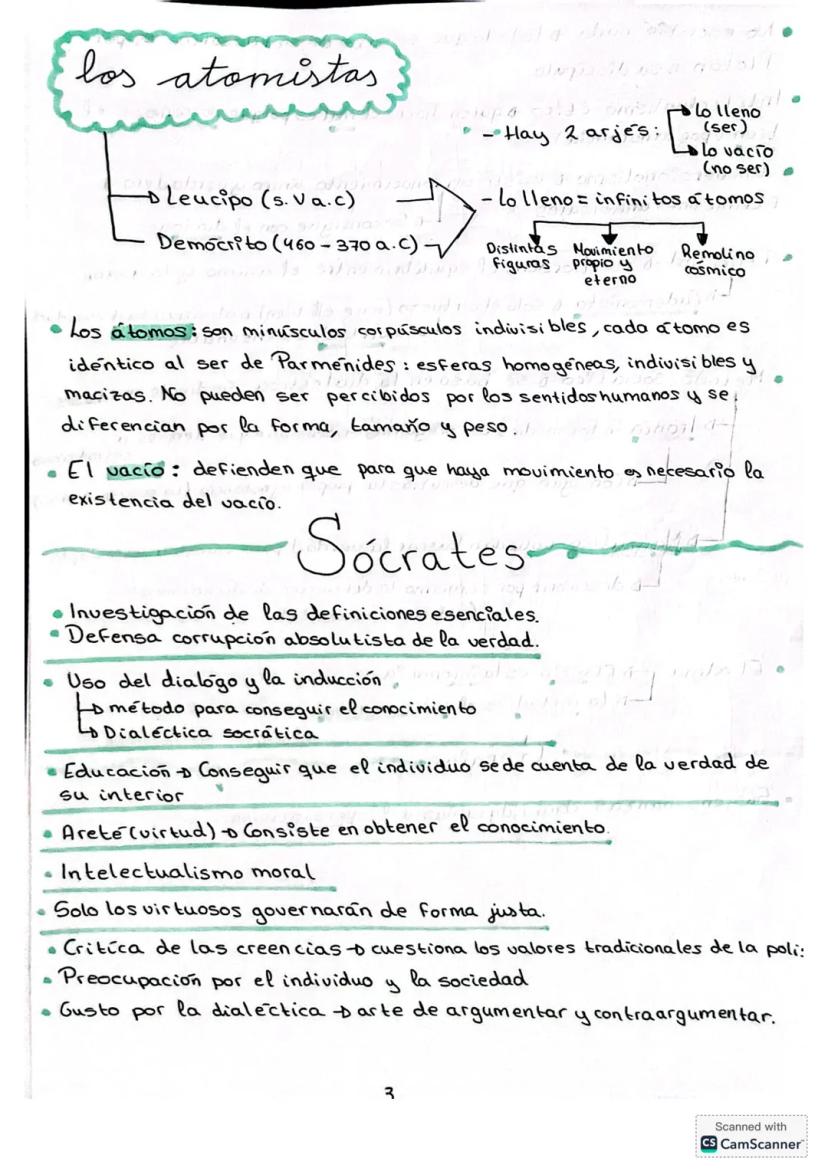 los atomistas
- Hay 2 arjés:
lo lleno
(ser)
lo vacío
(no ser)
Leucipo (s. V a.c)
Demócrito (460 - 370 a.C)
- lo lleno = infinitos átomos
Distintas
figuras
Movimiento
propio y
eterno
Remolino
cósmico
• Los átomos: son minúsculos corpúsculos indivisibles, cada átomo es
idéntico al ser de Parménides: esferas homogéneas, indivisibles y
macizas. No pueden ser percibidos por los sentidos humanos y se
diferencian por la forma, tamaño y peso.
• El vacío: defienden que para que haya movimiento es necesario la
existencia del vacío.
Sócrates
• Investigación de las definiciones esenciales.
• Defensa corrupción absolutista de la verdad.
• Uso del dialógo y la inducción
método para conseguir el conocimiento
Dialéctica socrática
• Educación → Conseguir que el individuo se de cuenta de la verdad de
su interior
• Areté (virtud) → Consiste en obtener el conocimiento.
• Intelectualismo moral
• Solo los virtuosos governarán de forma justa.
• Crítica de las creencias → cuestiona los valores tradicionales de la poli:
• Preocupación por el individuo y la sociedad
• Gusto por la dialéctica → arte de argumentar y contraargumentar.
3
Scanned with
CS CamScanner